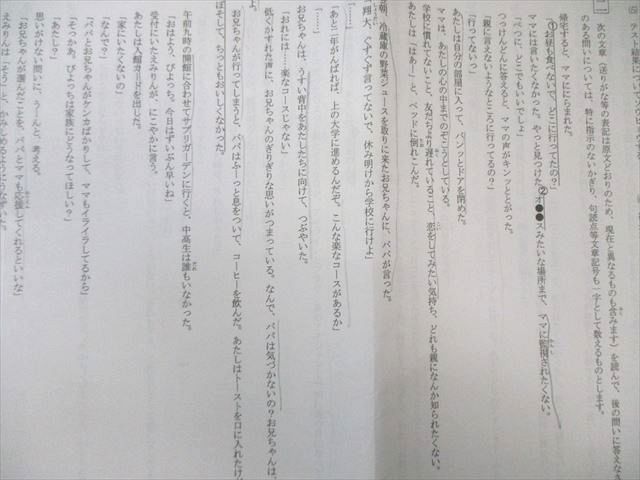 次の文章（送りがな等の表記は原文どおりのため、現在と異なるものも含みます）を読んで、後の問いに答えなさ
のある問いについては、特に指示のないかぎり、句読点等文章記号も一字として数えるものとします。
帰宅すると、ママににらまれた。
「①お昼も食べないで、どこに行ってたの？」
「べつに、どこでもいいでしょ」
ママには言いたくなかった。やっと見つけた②オ●●スみたいな場所まで、ママに監視されたくない。
つっけんどんに答えると、ママの声がキンッととがった。
「親に言えないようなところに行ってるの？」
「行ってないっ」
あたしは自分の部屋に入って、バンッとドアを閉めた。
ママは、あたしの心の中までのぞこうとしている。
学校に慣れてないこと、友だちより遅れていること、恋をしてみたい気持ち、どれも親になんか知られたくない。
あたしは「はあー」と、ベッドに倒れこんだ。
朝、冷蔵庫の野菜ジュースを取りに来たお兄ちゃんに、パパが言った。
「翔大、ぐずぐず言ってないで、休み明けから学校に行けよ」
「……」
「あと二年がんばれば、上の大学に進めるんだぞ。こんな楽なコースがあるか」
「……」
お兄ちゃんは、うすい背中をあたしたちに向けて、つぶやいた。
「おれには……楽なコースじゃない」
低くかすれた声に、お兄ちゃんのぎりぎりな思いがつまっている。なんで、パパは気づかないの？お兄ちゃんは、
よ。
お兄ちゃんが行ってしまうと、パパはふーっと息をついて、コーヒーを飲んだ。あたしはトーストを口に入れたけ
ぼそして、ちっともおいしくなかった。
午前九時の開館に合わせてサプリガーデンに行くと、中高生は誰もいなかった。
「おはよう、ぴよっち。今日はずいぶん早いね」
受付にいたえみりんが、にこやかに言う。
あたしは入館カードを出した。
「家にいたくないの」
「なんで？」
「パパとお兄ちゃんがケンカばかりして、ママもイライラしてるから」
「そっかあ。ぴよっちは家族にどうなってほしい？」
「あたし？」
思いがけない問いに、うーんと、考える。
「お兄ちゃんが選んだことを、パパとママも応援してくれるといいな」
えみりんは「そう」と、かみしめるようにうなずいた。